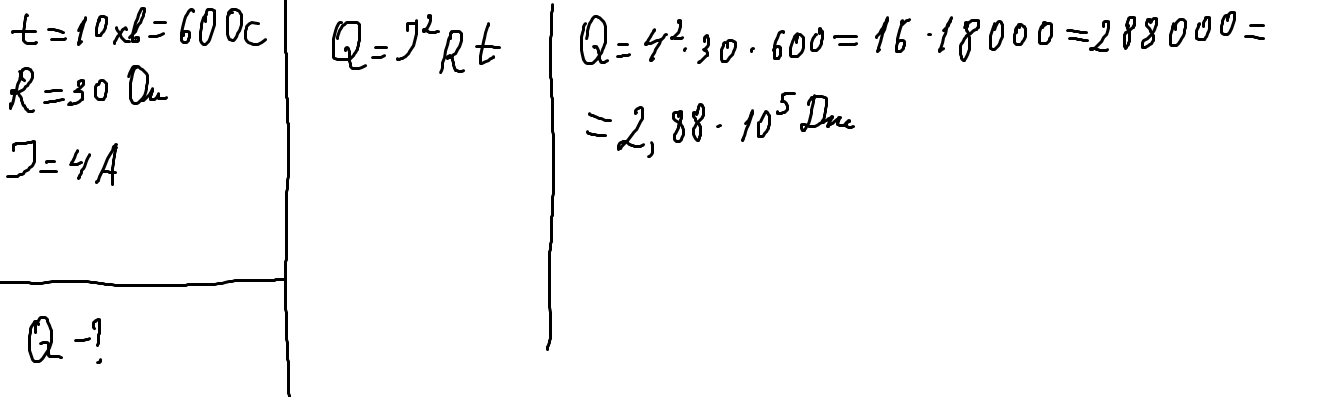 t=10хв=600с
R=30 Ом
I=4А
Q-?
Q=I²Rt
Q=4²·30·600=16·18000=288000=
=2,88·10⁵ Дж